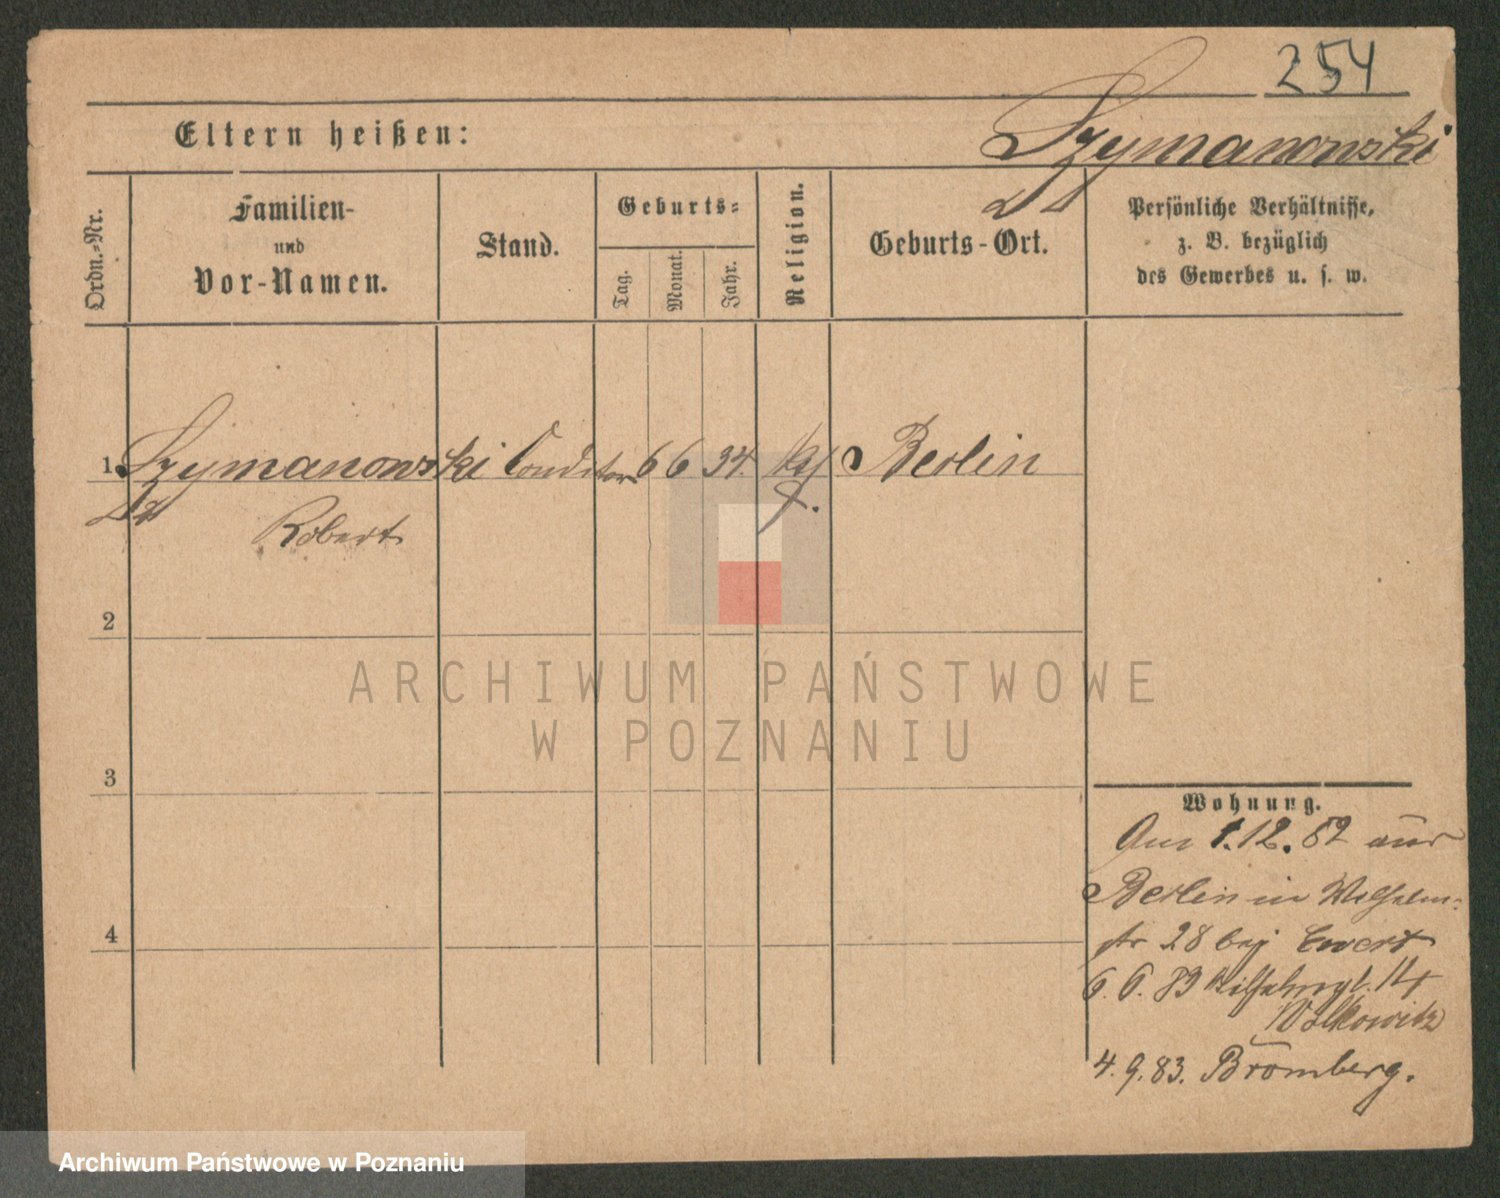 254
Eltern heißen:
Szymanowski
Ordn.-Nr.
Familien-
und
Vor-Namen.
Stand.
Geburts-
Tag.
Monat.
Jahr.
Religion.
Geburts-Ort.
Persönliche Verhältnisse,
z. B. bezüglich
des Gewerbes u. s. w.
1. Szymanowski Conditor 6 6 34. Berlin
Robert
2
3
4
Wohnung.
Am 1.12.82 aus
Berlin in Wilhelm-
str 28 bei Ewert
6. 6. 83 14
Volkowitz
4.9.83. Bromberg.
ARCHIWUM PAŃSTWOWE
W POZNANIU
Archiwum Państwowe w Poznaniu